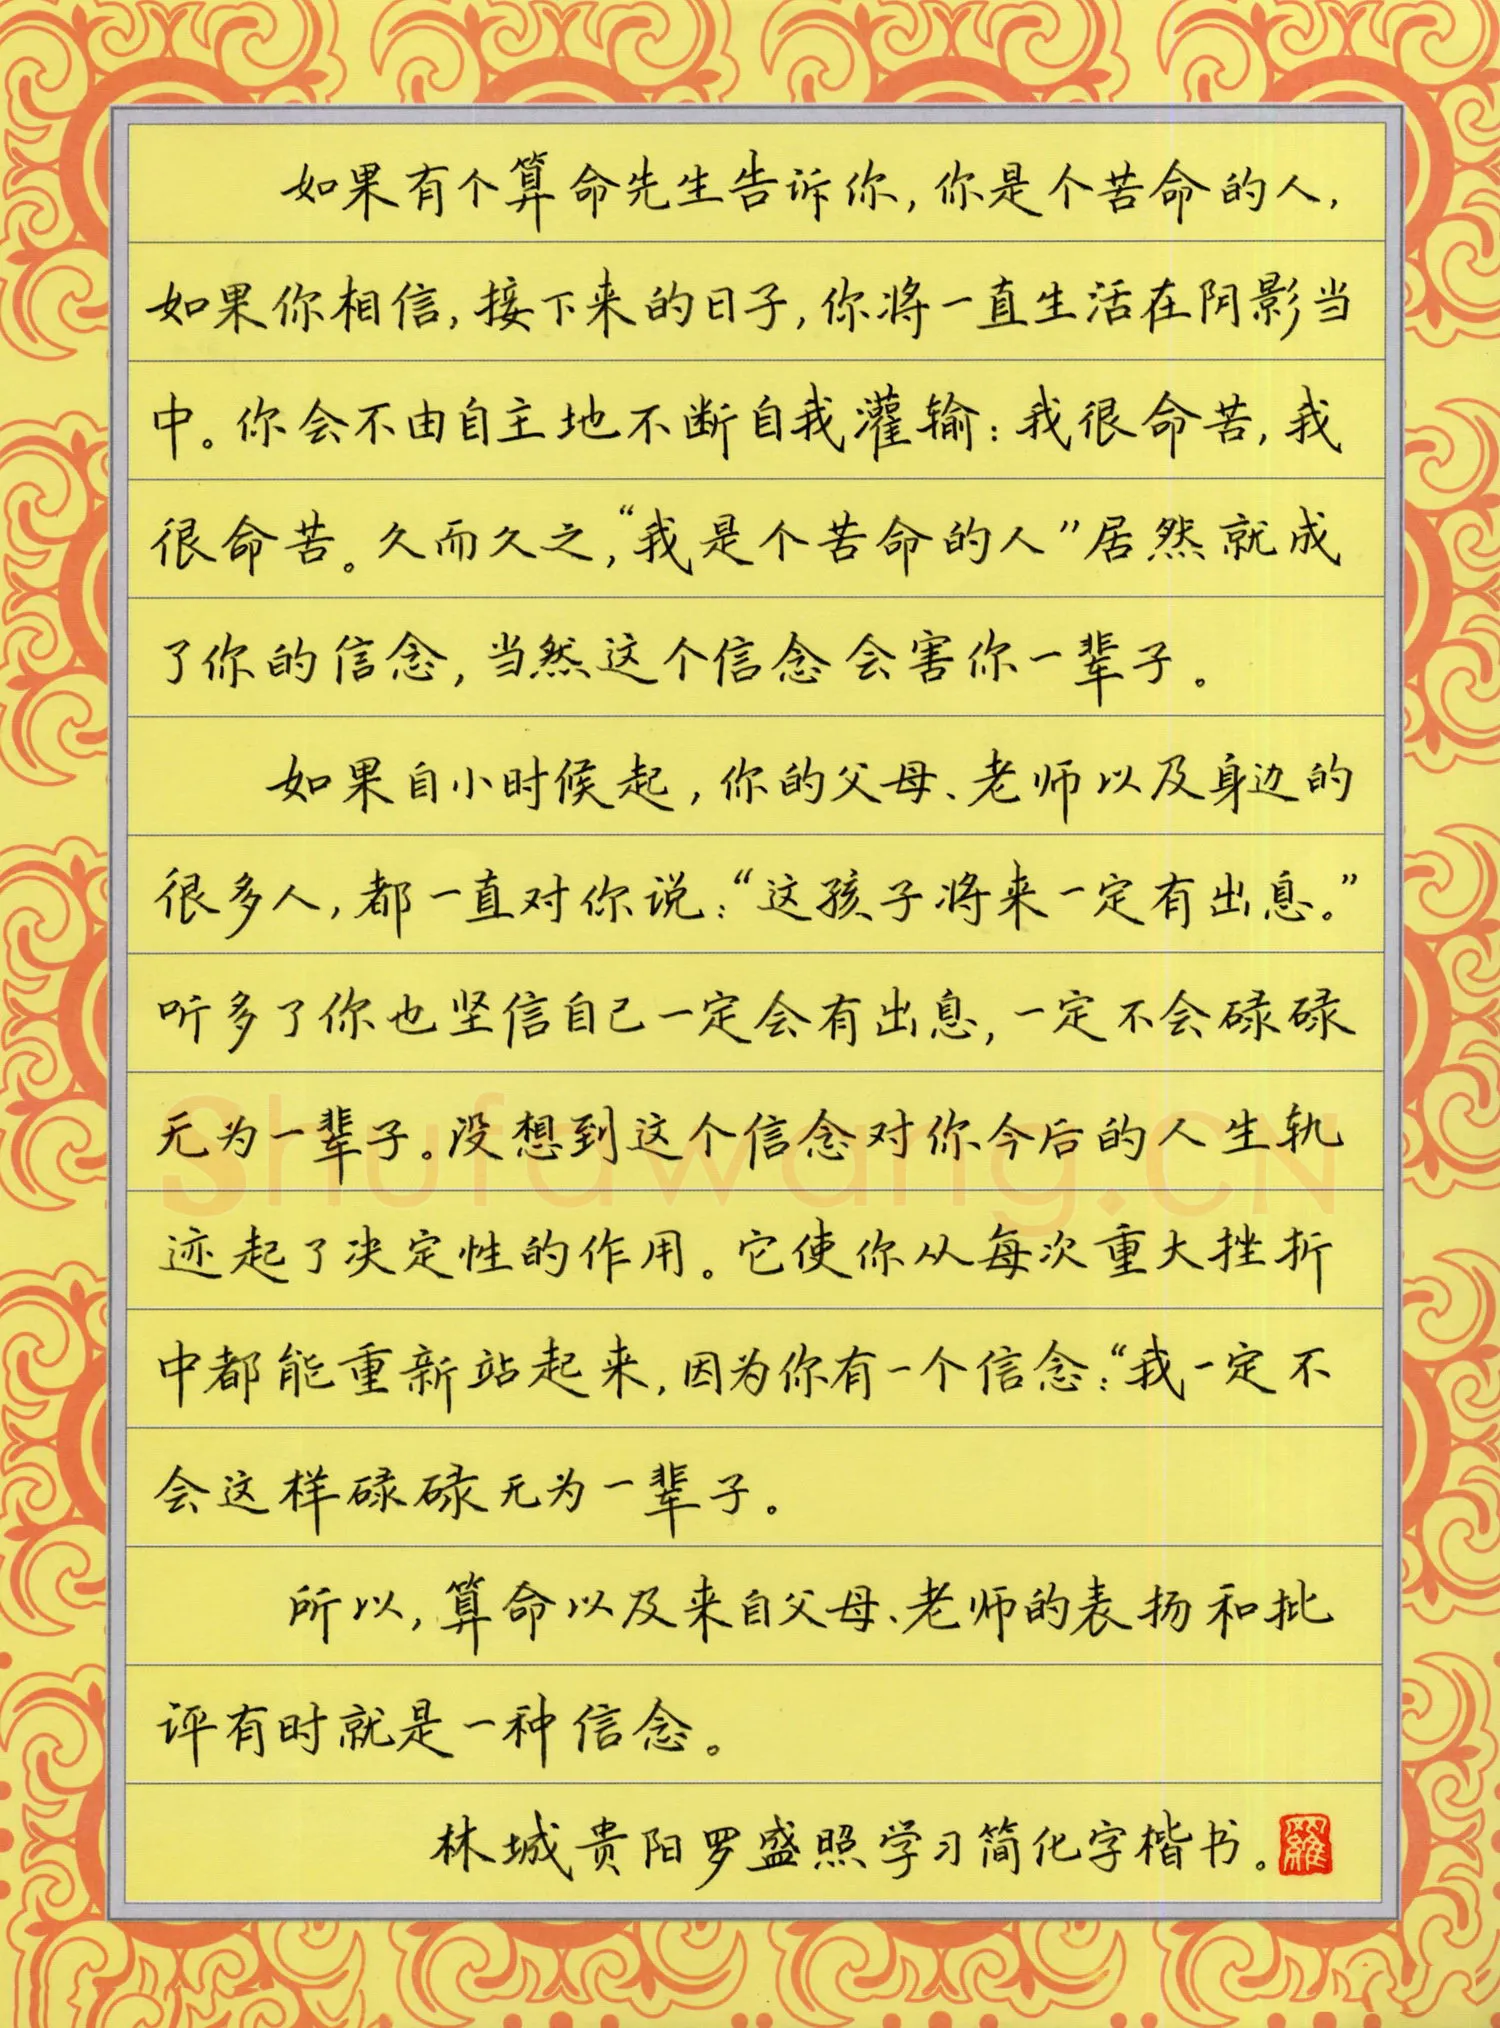 如果有个算命先生告诉你，你是个苦命的人，
如果你相信，接下来的日子，你将一直生活在阴影当
中。你会不由自主地不断自我灌输：我很命苦，我
很命苦。久而久之，“我是个苦命的人”居然就成
了你的信念，当然这个信念会害你一辈子。
如果自小时候起，你的父母、老师以及身边的
很多人，都一直对你说：“这孩子将来一定有出息。”
听多了你也坚信自己一定会有出息，一定不会碌碌
无为一辈子。没想到这个信念对你今后的人生轨
迹起了决定性的作用。它使你从每次重大挫折
中都能重新站起来，因为你有一个信念：“我一定不
会这样碌碌无为一辈子。
所以，算命以及来自父母、老师的表扬和批
评有时就是一种信念。
林城贵阳罗盛照学习简化字楷书。
羅
shufawang.CN